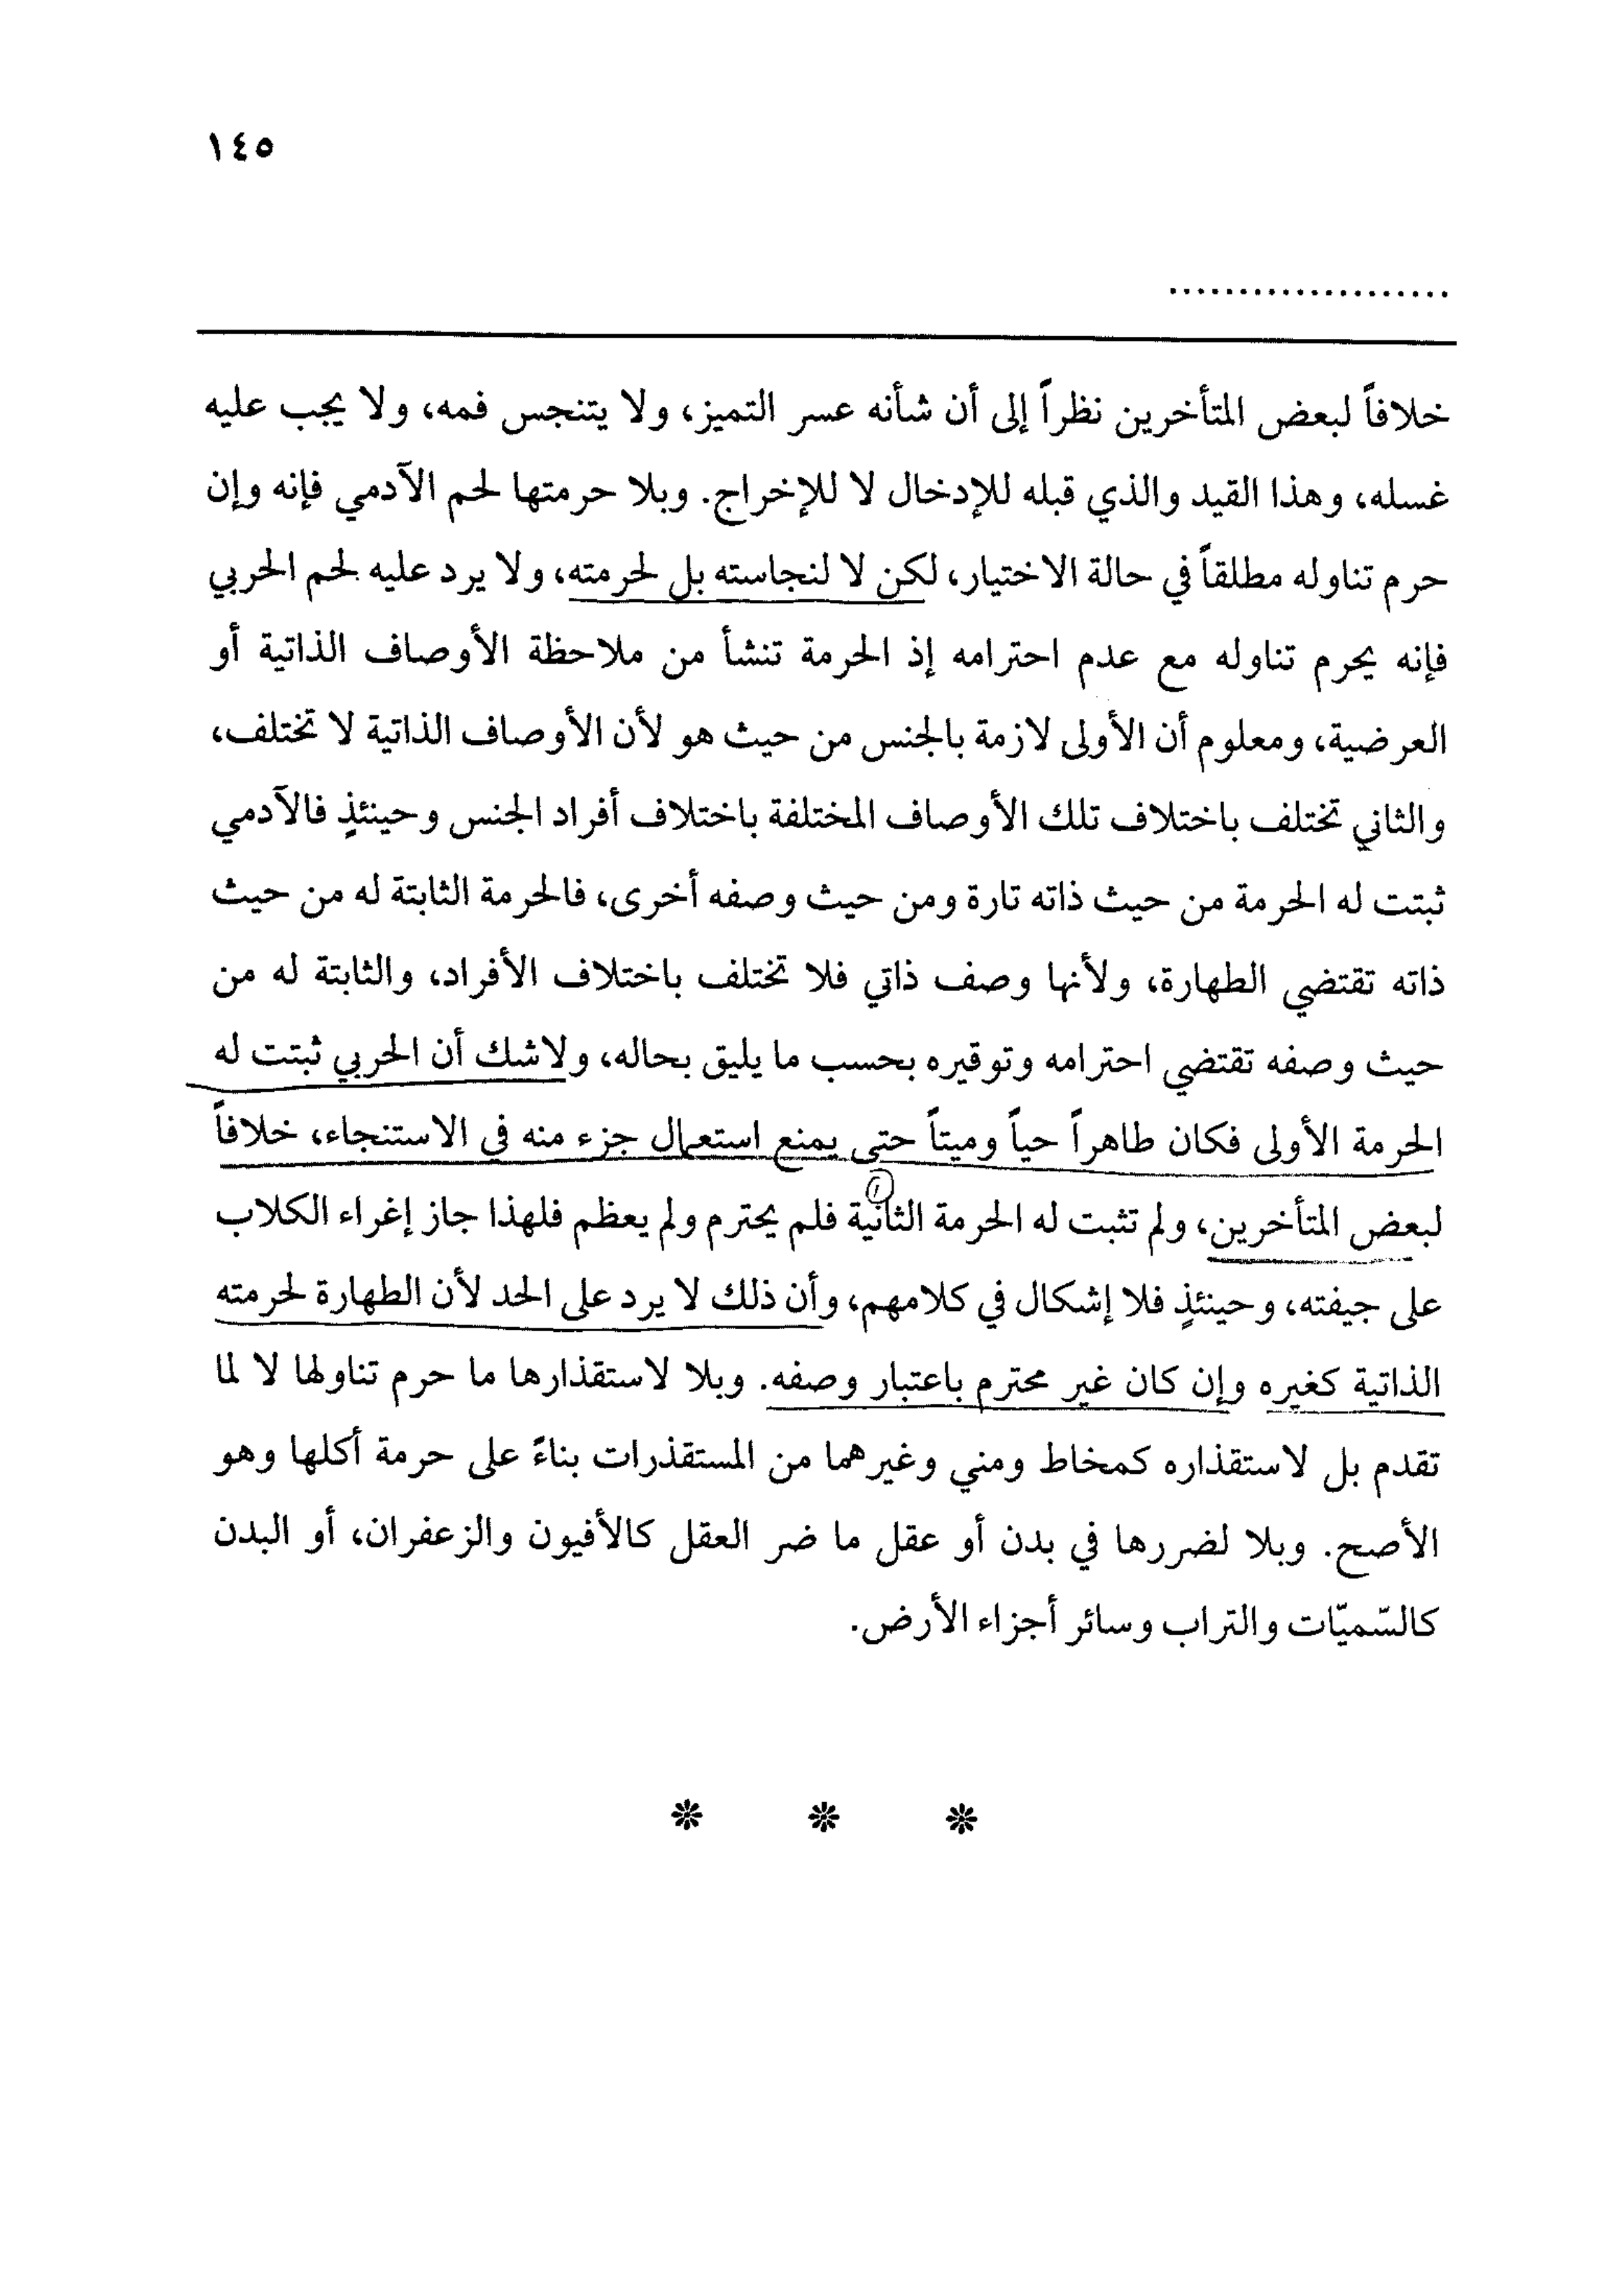 ١٤٥
....................
خلافاً لبعض المتأخرين نظراً إلى أن شأنه عسر التميز، ولا يتنجس فمه، ولا يجب عليه
غسله، وهذا القيد والذي قبله للإدخال لا للإخراج. وبلا حرمتها لحم الآدمي فإنه وإن
حرم تناوله مطلقاً في حالة الاختيار، لكن لا لنجاسته بل لحرمته، ولا يرد عليه لحم الحربي
فإنه يحرم تناوله مع عدم احترامه إذ الحرمة تنشأ من ملاحظة الأوصاف الذاتية أو
العرضية، ومعلوم أن الأولى لازمة بالجنس من حيث هو لأن الأوصاف الذاتية لا تختلف،
والثاني تختلف باختلاف تلك الأوصاف المختلفة باختلاف أفراد الجنس وحينئذٍ فالآدمي
ثبتت له الحرمة من حيث ذاته تارة ومن حيث وصفه أخرى، فالحرمة الثابتة له من حيث
ذاته تقتضي الطهارة، ولأنها وصف ذاتي فلا تختلف باختلاف الأفراد، والثابتة له من
حيث وصفه تقتضي احترامه وتوقيره بحسب ما يليق بحاله، ولاشك أن الحربي ثبتت له
الحرمة الأولى فكان طاهراً حياً وميتاً حتى يمنع استعمال جزء منه في الاستنجاء، خلافاً
لبعض المتأخرين، ولم تثبت له الحرمة الثانية فلم يحترم ولم يعظم فلهذا جاز إغراء الكلاب
على جيفته، وحينئذٍ فلا إشكال في كلامهم، وأن ذلك لا يرد على الحد لأن الطهارة لحرمته
الذاتية كغيره وإن كان غير محترم باعتبار وصفه. وبلا لاستقذارها ما حرم تناولها لا لما
تقدم بل لاستقذاره كمخاط ومني وغيرهما من المستقذرات بناءً على حرمة أكلها وهو
الأصح. وبلا لضررها في بدن أو عقل ما ضر العقل كالأفيون والزعفران، أو البدن
كالسّميّات والتراب وسائر أجزاء الأرض.
* * *